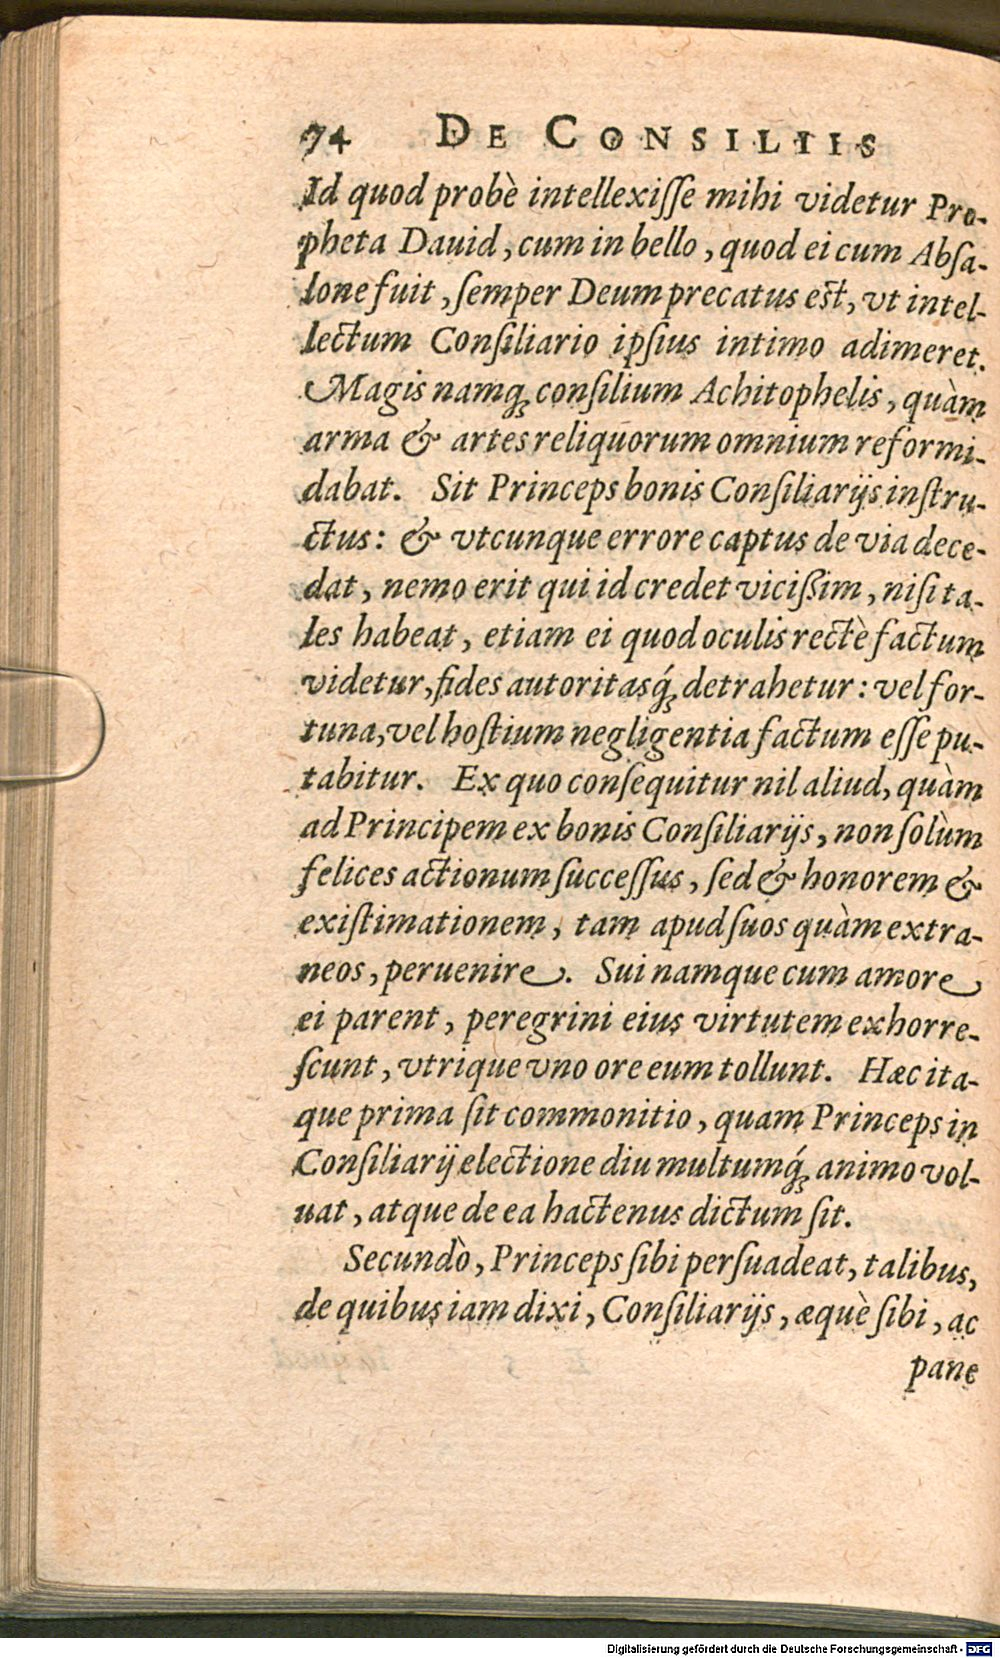 74 DE CONSILIIS
Id quod probè intellexiſſe mihi videtur Pro-
pheta Dauid, cum in bello, quod ei cum Abſa-
lone fuit, ſemper Deum precatus est, vt intel-
lectum Conſiliario ipſius intimo adimeret.
Magis namq; conſilium Achitophelis, quàm
arma & artes reliquorum omnium reformi-
dabat. Sit Princeps bonis Conſiliarijs inſtru-
ctus: & vtcunque errore captus de via dece-
dat, nemo erit qui id credet viciſsim, niſi ta-
les habeat, etiam ei quod oculis rectè factum
videtur, fides autoritasq́; detrahetur: vel for-
tuna, vel hoſtium negligentia factum eſſe pu-
tabitur. Ex quo conſequitur nil aliud, quàm
ad Principem ex bonis Conſiliarijs, non ſolùm
felices actionum ſucceſſus, ſed & honorem &
exiſtimationem, tam apud ſuos quàm extra-
neos, peruenire. Sui namque cum amore
ei parent, peregrini eius virtutem exhorre-
ſcunt, vtrique vno ore eum tollunt. Hæc ita-
que prima ſit commonitio, quam Princeps in
Conſiliarij electione diu multumq́; animo vol-
uat, atque de ea hactenus dictum ſit.
Secundò, Princeps ſibi perſuadeat, talibus,
de quibus iam dixi, Conſiliarijs, æquè ſibi, ac
pane
Digitalisierung gefördert durch die Deutsche Forschungsgemeinschaft - DFG